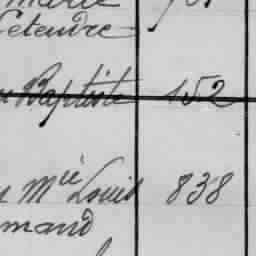 Marie
Letendre
Baptiste 152
Mie Louis 838
mand